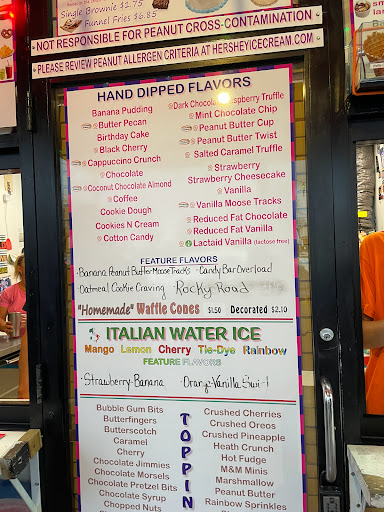 Single Brownie $1.75
Funnel Fries $6.85
NOT RESPONSIBLE FOR PEANUT CROSS-CONTAMINATION
PLEASE REVIEW PEANUT ALLERGEN CRITERIA AT HERSHEYICECREAM.COM
HAND DIPPED FLAVORS
Banana Pudding
Butter Pecan
Birthday Cake
Black Cherry
Cappuccino Crunch
Chocolate
Coconut Chocolate Almond
Coffee
Cookie Dough
Cookies N Cream
Cotton Candy
Dark Chocolate Raspberry Truffle
Mint Chocolate Chip
Peanut Butter Cup
Peanut Butter Twist
Salted Caramel Truffle
Strawberry
Strawberry Cheesecake
Vanilla
Vanilla Moose Tracks
Reduced Fat Chocolate
Reduced Fat Vanilla
Lactaid Vanilla (lactose free)
FEATURE FLAVORS
·Banana Peanut Butter Moose Tracks ·Candy Bar Overload
·Oatmeal Cookie Craving ·Rocky Road
"Homemade" Waffle Cones $1.50 Decorated $2.10
ITALIAN WATER ICE
Mango Lemon Cherry Tie-Dye Rainbow
FEATURE FLAVORS
·Strawberry-Banana ·Orange-Vanilla Swirl
TOPPIN
Bubble Gum Bits
Butterfingers
Butterscotch
Caramel
Cherry
Chocolate Jimmies
Chocolate Morsels
Chocolate Pretzel Bits
Chocolate Syrup
Chopped Nuts
Crushed Cherries
Crushed Oreos
Crushed Pineapple
Heath Crunch
Hot Fudge
M&M Minis
Marshmallow
Peanut Butter
Rainbow Sprinkles